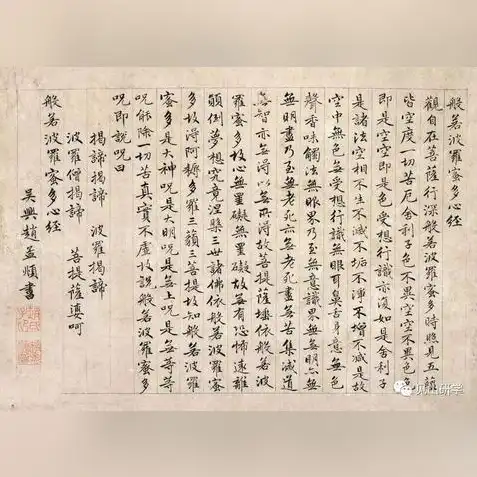 般若波羅蜜多心經
觀自在菩薩行深般若波羅蜜多時照見五蘊
皆空度一切苦厄舍利子色不異空空不異色色
即是空空即是色受想行識亦復如是舍利子
是諸法空相不生不滅不垢不淨不增不減是故
空中無色無受想行識無眼耳鼻舌身意無色
聲香味觸法無眼界乃至無意識界無無明亦無
無明盡乃至無老死亦無老死盡無苦集滅道
無智亦無得以無所得故菩提薩埵依般若波
羅蜜多故心無罣礙無罣礙故無有恐怖遠離
顛倒夢想究竟涅槃三世諸佛依般若波羅蜜
多故得阿耨多羅三藐三菩提故知般若波羅
蜜多是大神咒是大明咒是無上咒是無等等
咒能除一切苦真實不虛故說般若波羅蜜多
咒即說咒曰
揭諦揭諦 波羅揭諦
波羅僧揭諦 菩提薩婆訶
般若波羅蜜多心經
吳興趙孟頫書
见山研学